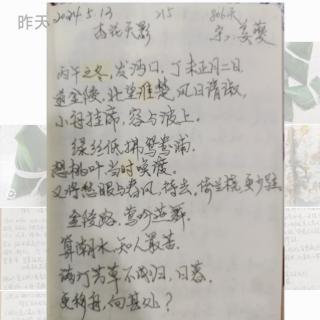 昨天
2024.5.13 215 806天
杏花天影 宋:姜夔
丙午之冬,发沔口,丁未正月二日
道金陵,北望淮楚,风日清淑,
小舟挂席,容与波上。
绿丝低拂鸳鸯浦,
想桃叶当时唤渡。
又将愁眼与春风,待去,倚兰桡更少驻
金陵路,莺吟燕舞。
算潮水,知人最苦。
满汀芳草不成归,日暮,
更移舟,向甚处?